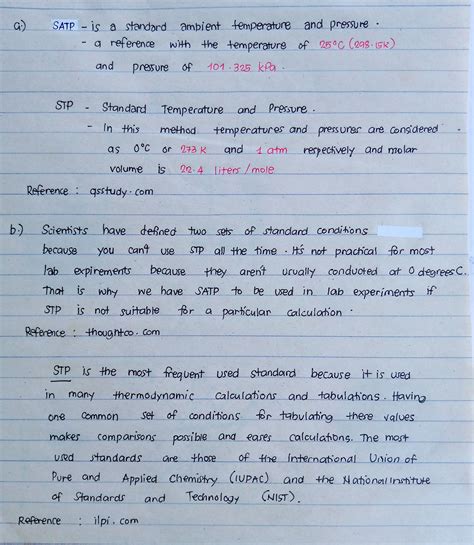 a.) SATP - is a standard ambient temperature and pressure.
- a reference with the temperature of 25°C (298.15K)
and pressure of 101.325 kPa.
STP - Standard Temperature and Pressure.
- In this method temperatures and pressures are considered
as 0°C or 273 K and 1 atm respectively and molar
volume is 22.4 liters/mole
Reference : qsstudy.com
b.) Scientists have defined two sets of standard conditions
because you can't use STP all the time. It's not practical for most
lab expirements because they aren't usually conducted at 0 degrees C.
That is why we have SATP to be used in lab experiments if
STP is not suitable for a particular calculation.
Reference : thoughtco.com
STP is the most frequent used standard because it is used
in many thermodynamic calculations and tabulations. Having
one common set of conditions for tabulating these values
makes comparisons possible and eases calculations. The most
used standards are those of the International Union of
Pure and Applied Chemistry (IUPAC) and the National Institute
of Standards and Technology (NIST).
Reference : ilpi.com